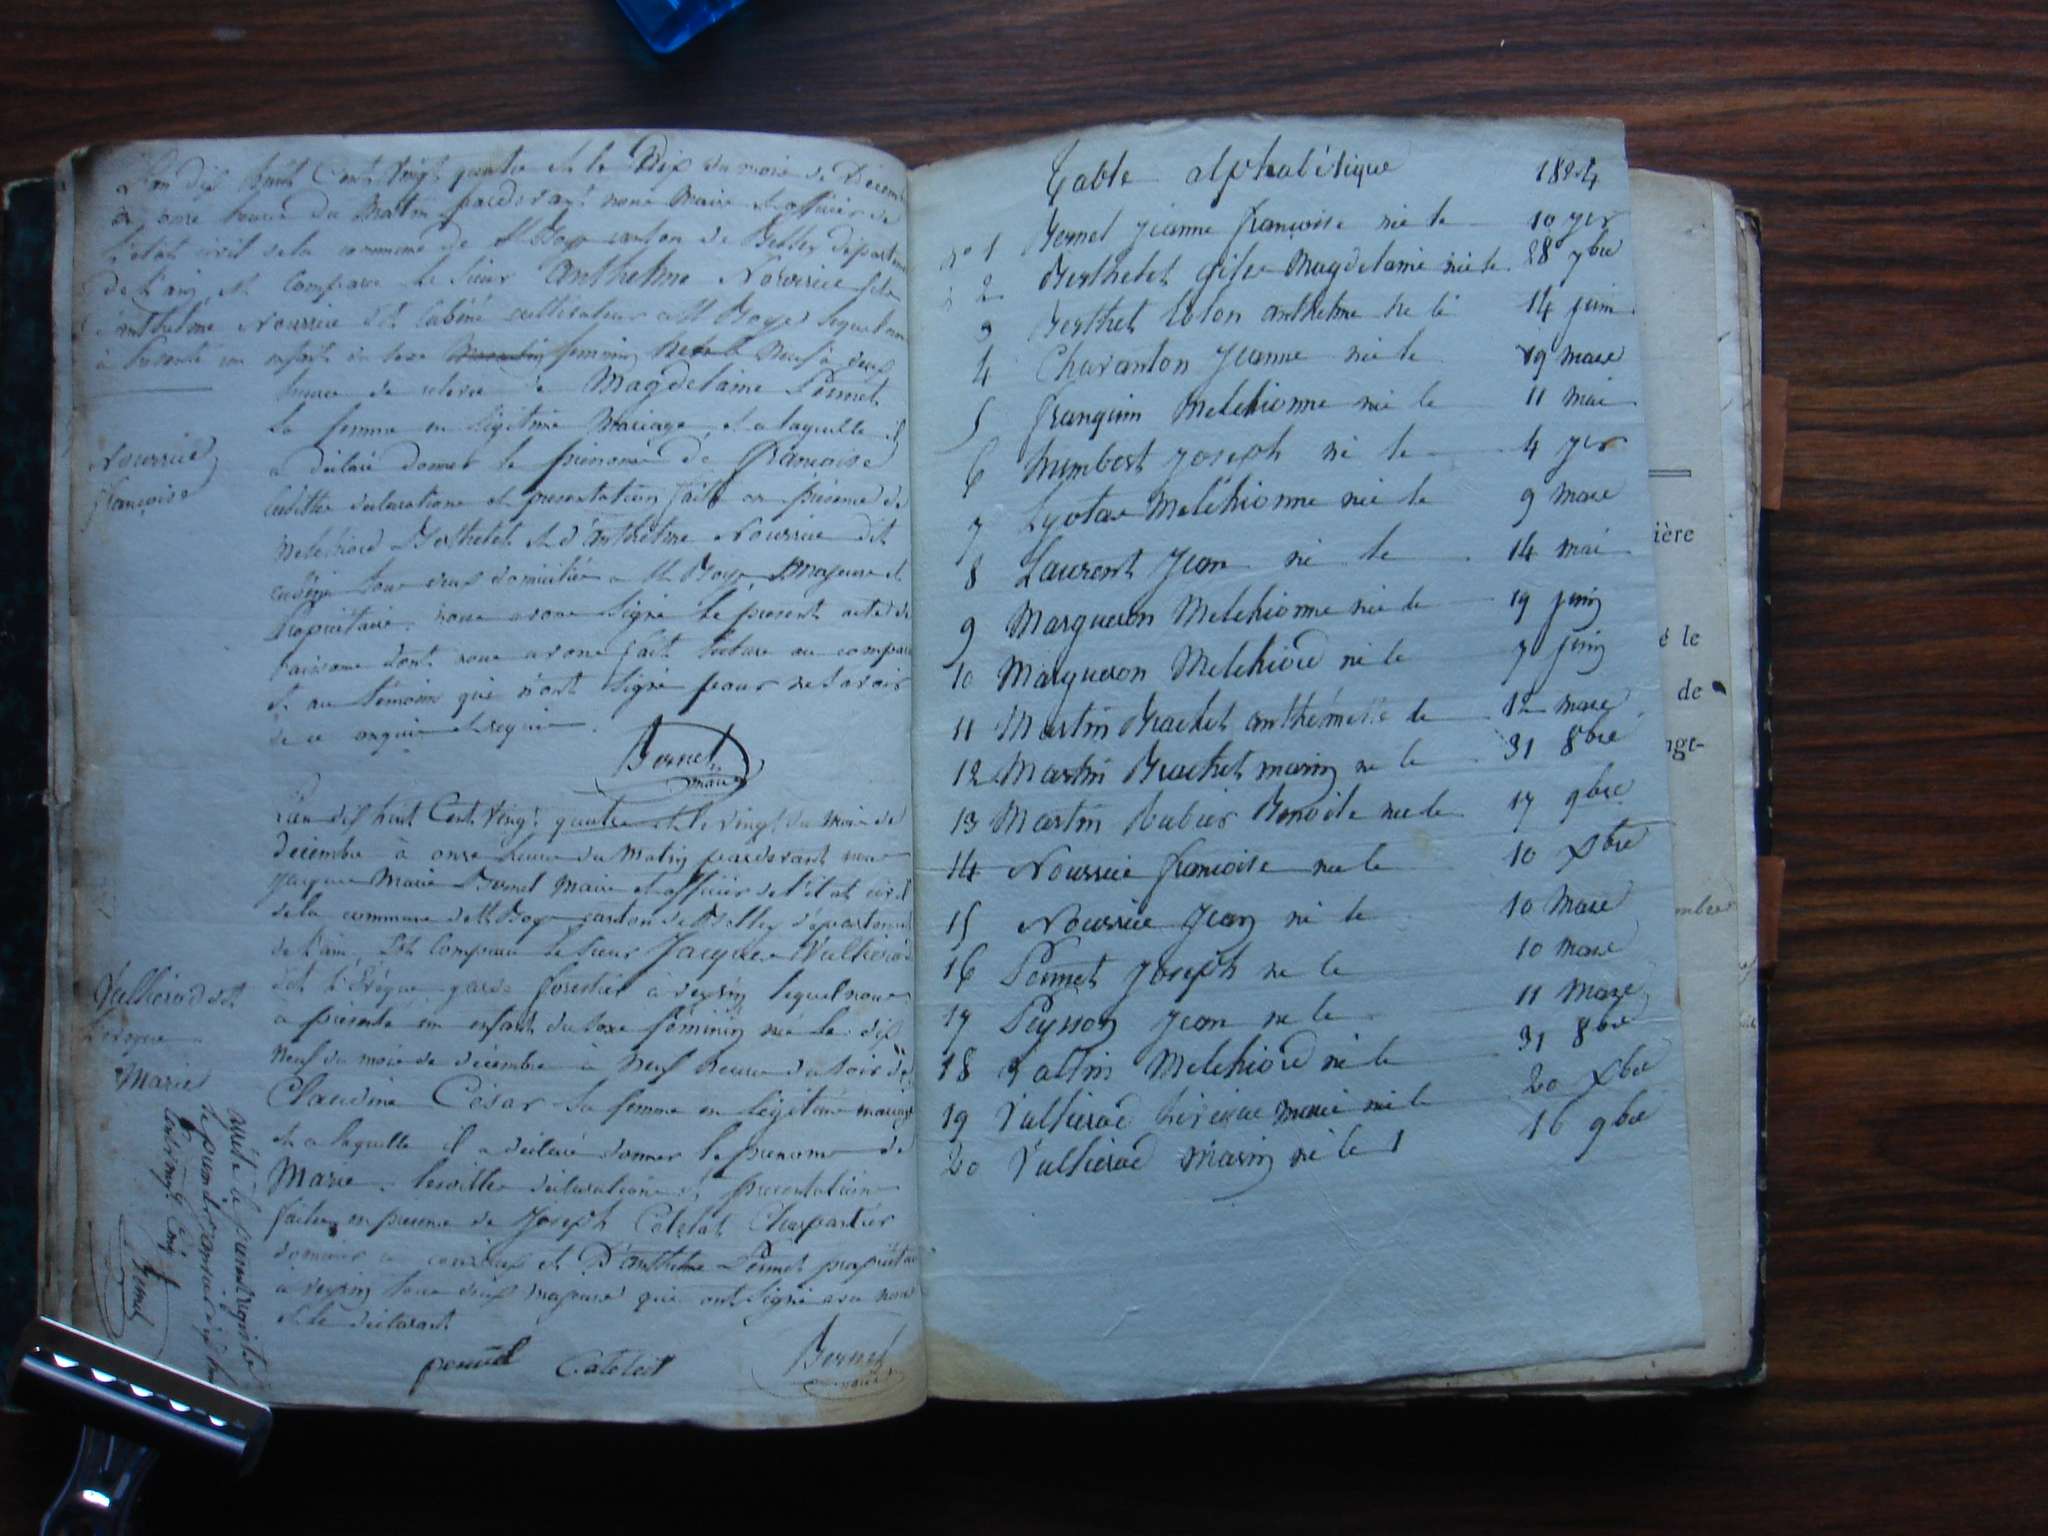 L'an dix huit Cent vingt quatre et le Dix du mois de Décem
à onze heures du Matin pardevant nous Maire et officier de
l'état civil de la commune de St Boys canton de Belley départem
de l'ain, Est Comparu le Sieur Anthelme Nourrice fils
d'anthelme Nourrice dit Cabéné cultivateur à St Boys lequel nous
à présenté un enfant du sexe féminin Né le Neuf à deux
heures de relevée de Magdelaine Pennet
Sa femme en légitime Mariage, et a laquelle il
a déclaré donner le prénom de françoise
Nourrice
françoise
lesdittes déclarations et présentation faite en présence de
Melchiord Berthelet et d'anthelme Nourrice dit
cabéné tous deux domiciliés a St Boys, Majeurs et
Propriétaire. nous avons signé le présent acte de
naissance dont nous avons fait lecture au comparu
et au témoins qui n'ont signé pour ne savoir
de ce enquis et requis.
Bernet
maire
L'an dix huit Cent vingt quatre et le vingt du mois de
décembre à onze heures du Matin pardevant nous
Jacques Marie Bernet Maire et officier de l'état civil
de la commune de St Boys canton de Belley département
de l'ain, Est Comparu le Sieur Jacques Vullierod
dit l'Evêque garde forestier à veyrin lequel nous
Vullierod dit
Leveque
Marie
a présenté un enfant du sexe féminin née le dix
Neuf du mois de décembre à neuf heures du soir de
Claudine César sa femme en légitime mariage
et a laquelle il a déclaré donner le prénom de
Marie. lesdittes déclarations et présentation
faites en présence de Joseph Catelat Charpantier
et D'anthelme Pennet propriétaire
à veyrin tous deux majeurs qui ont signé avec nous
et le déclarant
arrêté le présent registre
le premier janvier dix huit
Cent vingt Cinq
Bernet
pennet Catelat Bernet
maire
Table alphabétique 1824
n° 1 Bernet jeanne françoise née le 10 Jer
2 Berthelet Magdelaine née le 28 7bre
3 Berthet Colon anthelme né le 14 juin
4 Charanton Jeanne née le 19 mars
5 franquin Melchionne née le 11 mai
6 humbert Joseph né le 4 Jer
7 Lyotar Melchionne née le 9 mars
8 Laurent Jean né le 14 mai
9 Margueron Melchionne née le 19 juin
10 Margueron Melchiord né le 7 juin
11 Martin Brachet le 12 mars
12 Martin Brachet marin né le 31 8bre
13 Martin Rubier Benoite née le 17 9bre
14 Nourrice françoise née le 10 xbre
15 Nourrice Jean né le 10 Mars
16 Pennet Joseph né le 10 mars
17 Peysson Jean né le 11 Mars
18 Vallin Melchiord né le 31 8bre
19 Vullierod Léveque marie née le 20 xbre
20 Vullierod Marin né le 16 9bre
ière
é le
de
ngt-
mbre